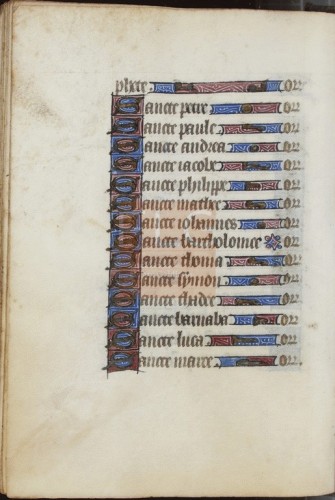 phete or
Sancte petre or
Sancte paule or
Sancte andrea or
Sancte iacobe or
Sancte philippe or
Sancte mathee or
Sancte iohannes or
Sancte bartholomee or
Sancte thoma or
Sancte symon or
Sancte thadee or
Sancte barnaba or
Sancte luca or
Sancte marce or